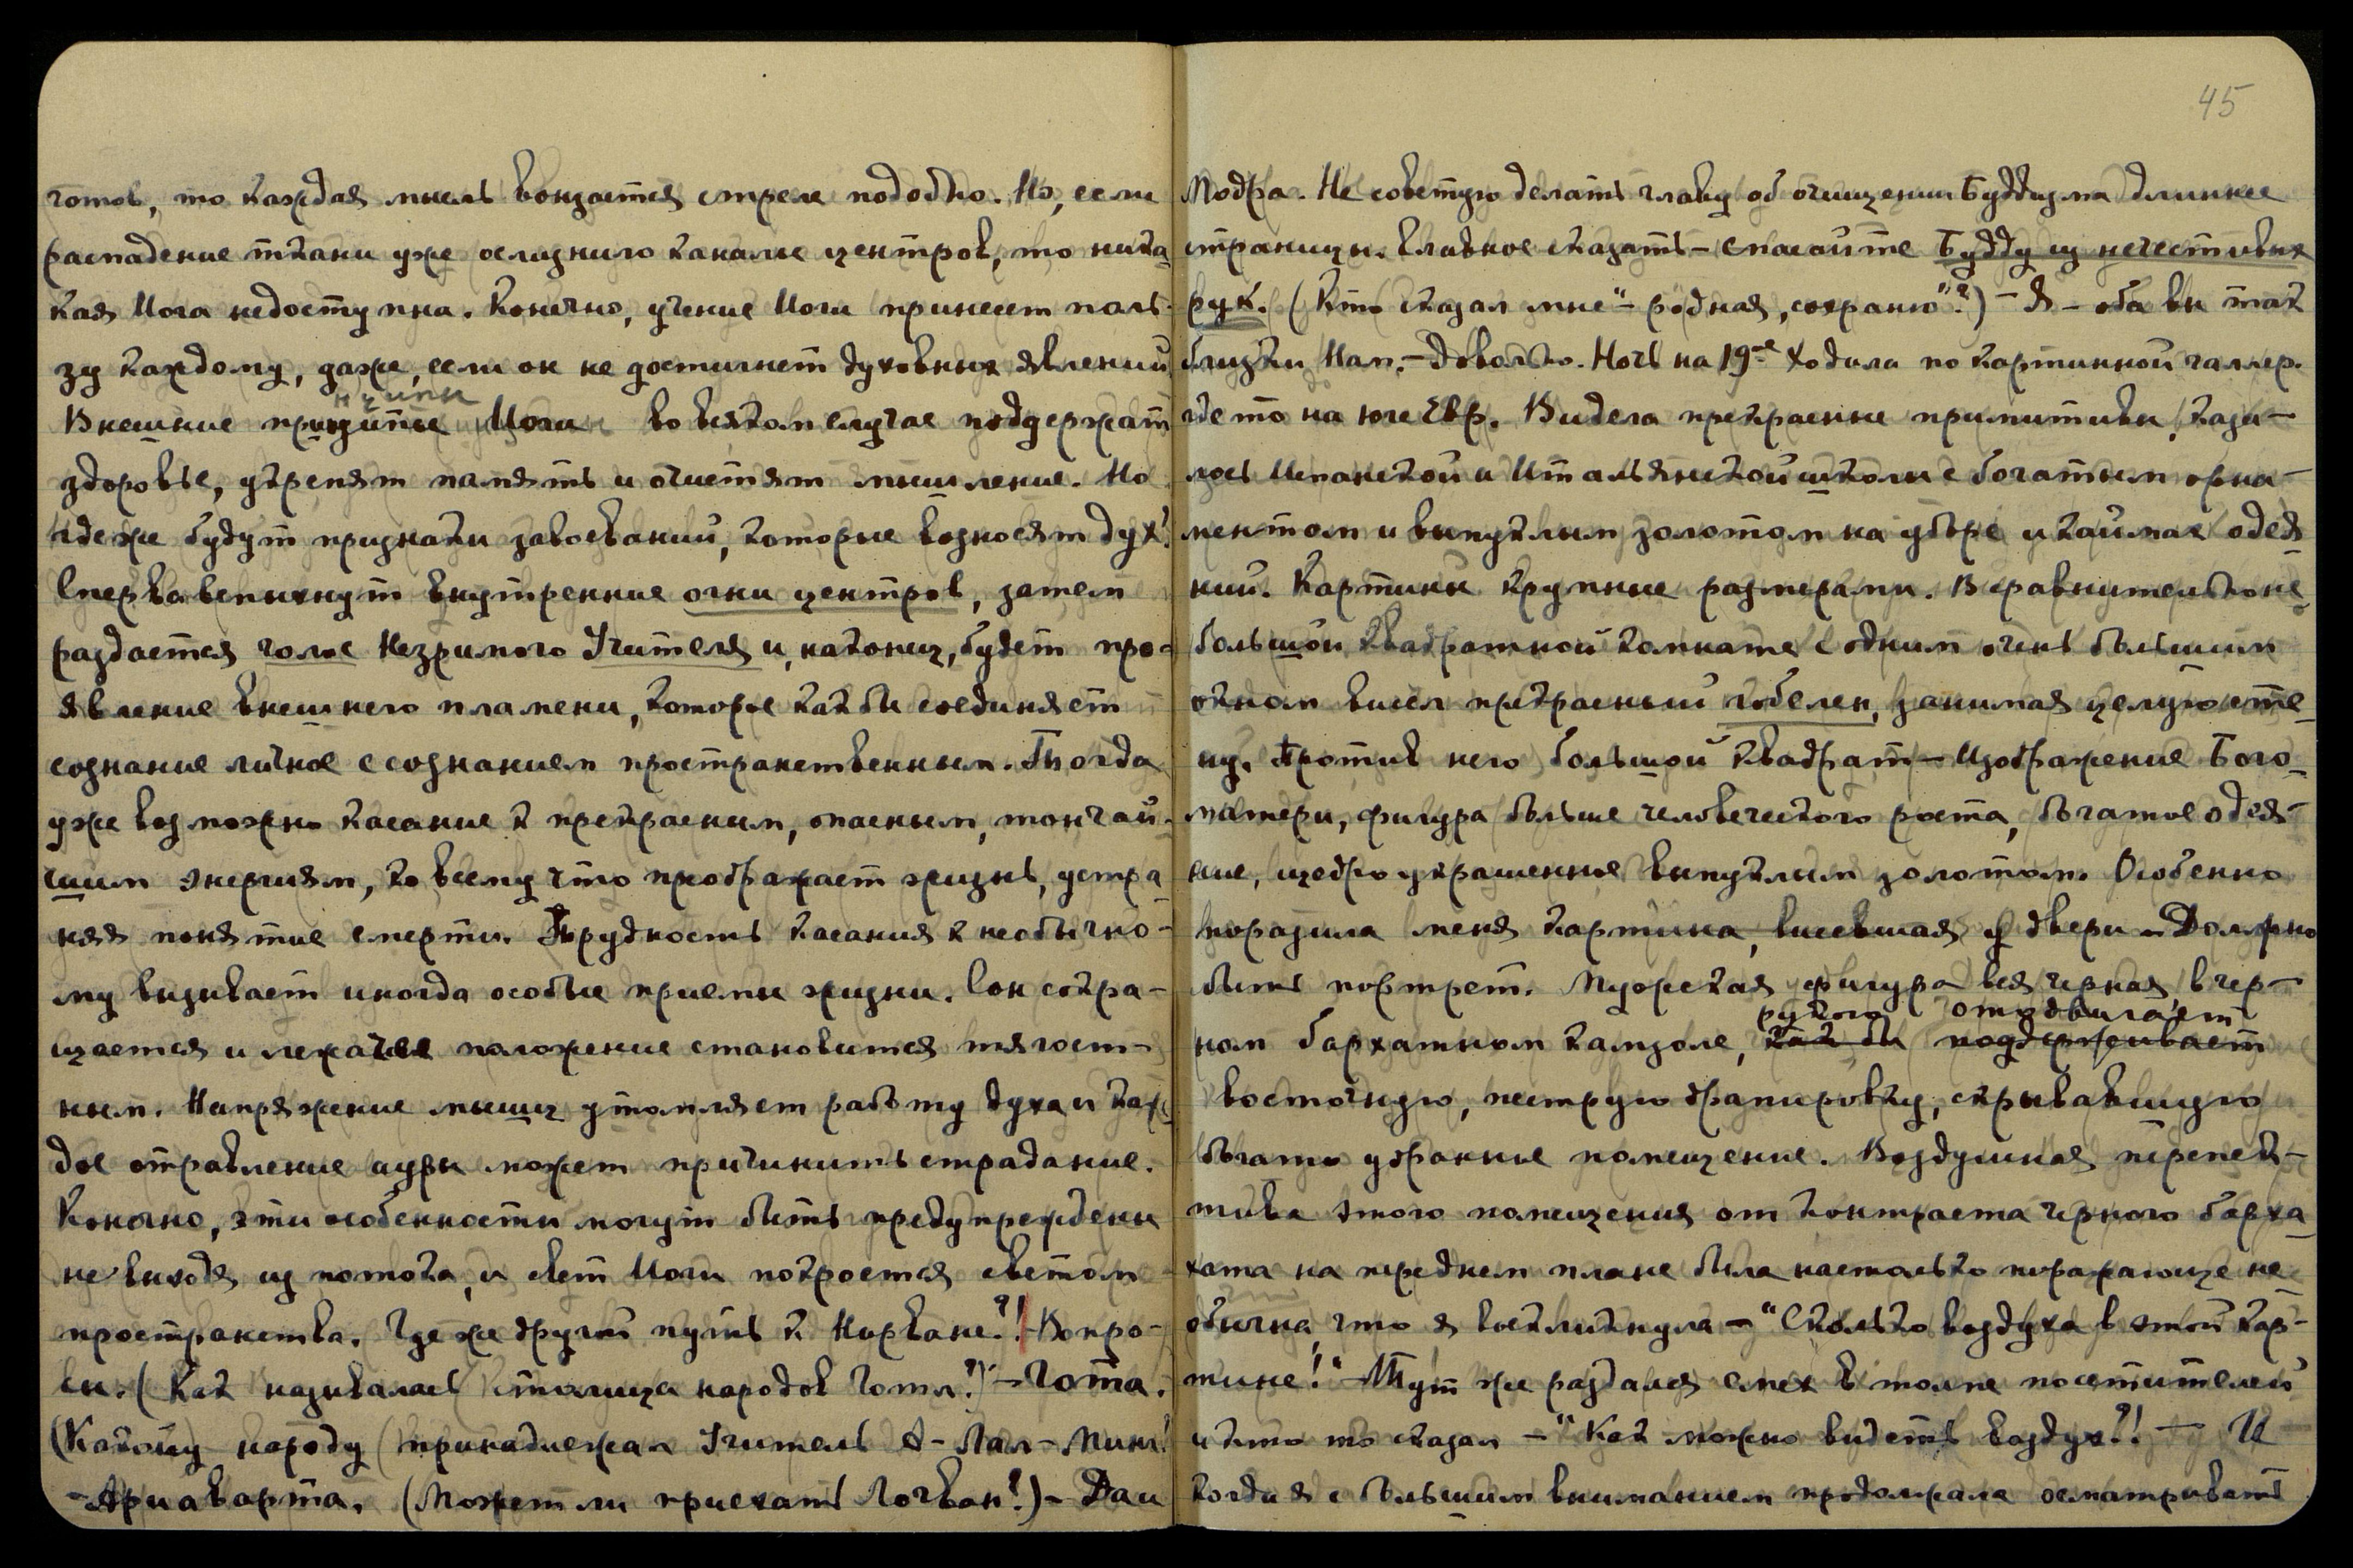 готов, то каждая мысль вонзается стреле подобно. Но, если
распадение ткани уже ослизнило каналы центров, то ника-
кая Иога недоступна. Конечно, учение Иоги принесет поль-
зу каждому, даже, если он не достигнет духовных явлений
нципы
Внешние принципы Иоги во всяком случае поддержат
здоровье, укрепят память и очистят мышление. Но
где же будут признаки завоеваний, которые возносят дух?
Сперва вспыхнут внутренние огни центров, затем
раздается голос Незримого Учителя и, наконец, будет про-
явление внешнего пламени, которое как бы соединяет
сознание личное с сознанием пространственным. Тогда
уже возможно касание к прекрасным, опасным, тончай-
шим энергиям, ко всему что преображает жизнь, устра-
няя понятие смерти. Трудность касания к необычно-
му вызывает иногда особые приемы жизни. Сон сокра-
щается и лежачее положение становится тягост-
ным. Напряжение мышц утомляет работу духа и каж-
дое отравление ауры может причинить страдание.
Конечно, эти особенности могут быть предупреждены
не выходя из потока, и свет Иоги покроется светом
пространства. Где же другой путь к Нирване?! - Вопро-
сы. (Как называлась столица народов Готл?) - Гота.
(Какому народу принадлежал Учитель А-Лал-Минг?
- Ариаварта. (Может ли приехать Логван?) - Дай
45
Модра. Не советую делать главу об очищении Буддизма длиннее
страницы. Главное сказать - спасайте Будду из нечестивых
рук. (Кто сказал мне "- родная, сохраню"?) - Я - оба вы так
близки Нам. - Довольно. Ночь на 19-е Ходила по картинной галлер.
где то на юге Евр. Видела прекрасные примитивы, каза-
лось Испанской и Итальянской школы с богатым орна-
ментом и выпуклым золотом на уборе и каймах одея-
ний. Картины крупные размерами. В сравнительно не-
большой квадратной комнате с одним очень большим
окном висел прекрасный гобелен, занимая целую сте-
ну. Против него большой квадрат - Изображение Бого-
матери, фигура больше человеческого роста, богатое одея-
ние, щедро украшенное выпуклым золотом. Особенно
поразила меня картина, висевшая у двери - Должно
быть портрет. Мужская фигура вся черная в чер-
рукою отодвигает
ном бархатном камзоле, как бы поддерживает
восточную, пеструю драпировку, скрывавшую
богато убранное помещение. Воздушная перспек-
тива этого помещения от контраста черного барха-
хата на переднем плане была настолько поражающе не
обычна, что я воскликнула - "Сколько воздуха в этой кар-
тине!" - Тут же раздался смех в толпе посетителей
и кто то сказал - "Как можно видеть воздух?! - И
когда я с большим вниманием продолжала осматривать